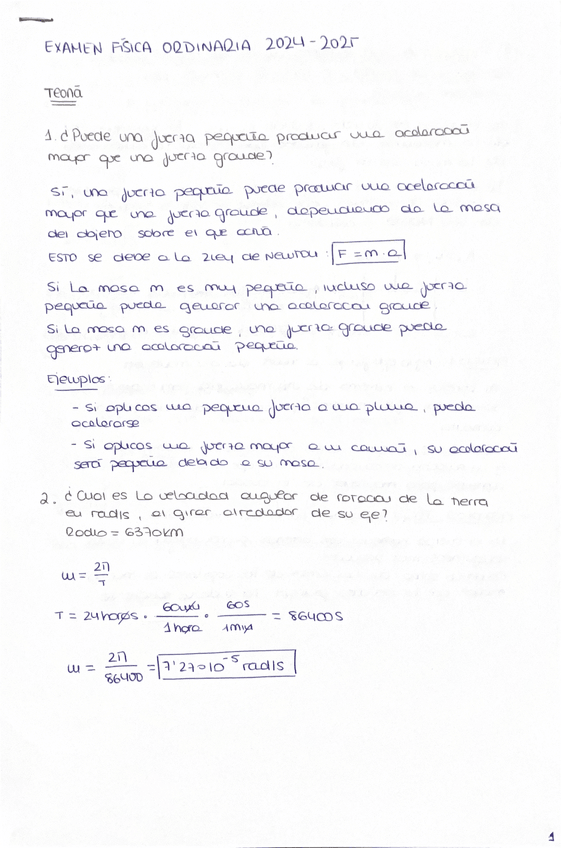 EXAMEN FÍSICA ORDINARIA 2024-2025
Teoría
1. ¿Puede una fuerza pequeña producir una aceleración
mayor que una fuerza grande?
Sí, una fuerza pequeña puede producir una aceleración
mayor que una fuerza grande, dependiendo de la masa
del objeto sobre el que actúa.
ESTO se debe a la 2Ley de Newton: F = m · a
Si la masa m es muy pequeña, incluso una fuerza
pequeña puede generar una aceleración grande.
Si la masa m es grande, una fuerza grande puede
generar una aceleración pequeña.
Ejemplos:
- Si aplicas una pequeña fuerza a una pluma, puede
acelerarse
- Si aplicas una fuerza mayor a un camión, su aceleración
será pequeña debido a su masa.
2. ¿Cual es la velocidad angular de rotación de la tierra
en rad/s, al girar alrededor de su eje?
Radio = 6370km
ω = 2π/T
T = 24 horas · 60 min/1 hora · 60s/1 min = 86400s
ω = 2π/86400 = 7'27·10⁻⁵ rad/s
1